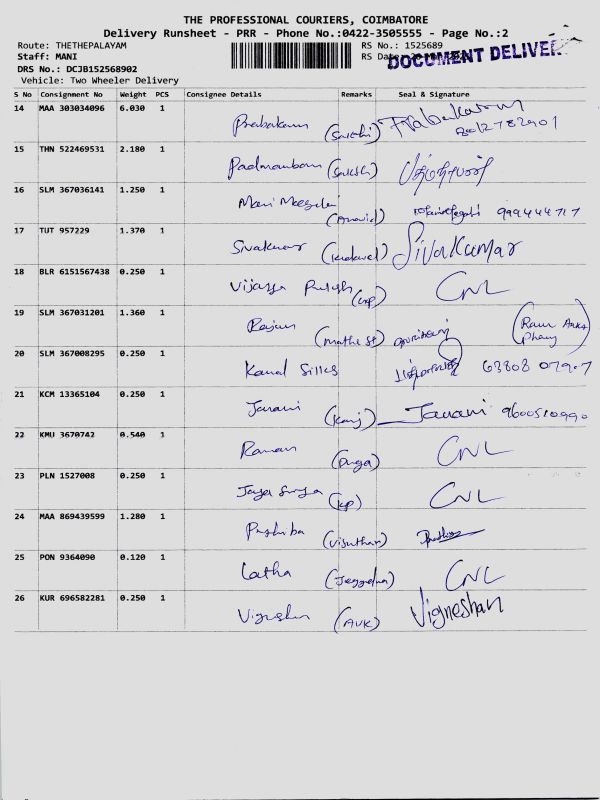 THE PROFESSIONAL COURIERS, COIMBATORE
Delivery Runsheet - PRR - Phone No.:0422-3505555 - Page No.:2
Route: THETHEPALAYAM RS No.: 1525689
Staff: MANI RS Date:
DOCUMENT DELIVER
DRS No.: DCJB152568902
Vehicle: Two Wheeler Delivery
S No Consignment No Weight PCS Consignee Details Remarks Seal & Signature
14 MAA 303034096 6.030 1 Prabakaran Prabakaran
8012782901
15 THN 522469531 2.180 1 Padmanabam
16 SLM 367036141 1.250 1 Mani 999444717
17 TUT 957229 1.370 1 Sivakumar Sivakumar
18 BLR 6151567438 0.250 1 Vijaya CNL
19 SLM 367031201 1.360 1 Rajan (Ram
20 SLM 367008295 0.250 1 Kamal Silks 63808 07907
21 KCM 13365104 0.250 1 Janani Janani 9600510990
22 KMU 3670742 0.540 1 Raman CNL
23 PLN 1527008 0.250 1 Jaya Surya (kp) CNL
24 MAA 869439599 1.280 1 Pushba
25 PON 9364090 0.120 1 Latha CNL
26 KUR 696582281 0.250 1 Vignesh (AVK) Vigneshan